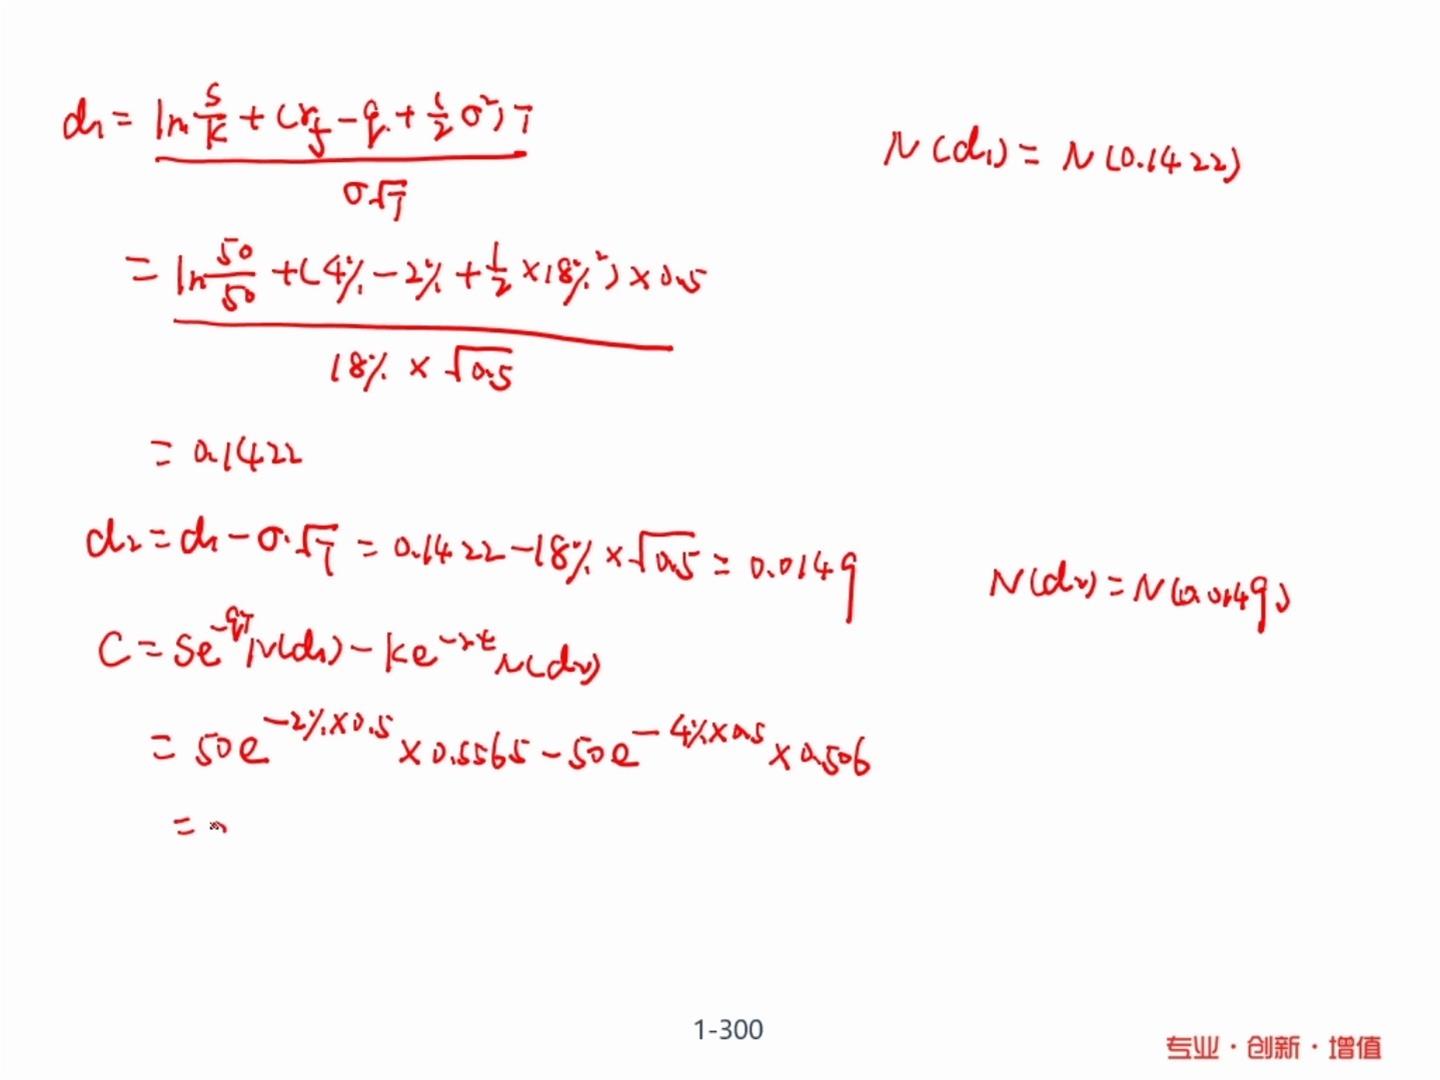 d₁ = (ln S/K + (rf - q + 1/2 σ²)T) / (σ√T)
N(d₁) = N(0.1422)
= (ln 50/50 + (4% - 2% + 1/2 × 18%²) × 0.5) / (18% × √0.5)
= 0.1422
d₂ = d₁ - σ·√T = 0.1422 - 18% × √0.5 = 0.0149
N(d₂) = N(0.0149)
C = Se^(-qT) N(d₁) - Ke^(-rt) N(d₂)
= 50e^(-2%×0.5) × 0.5565 - 50e^(-4%×0.5) × 0.506
=
1-300
专业·创新·增值